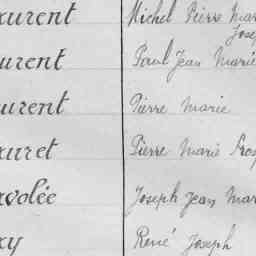 aurent Michel Pierre Mar
Jose
urent Paul Jean Marie
urent Pierre Marie
uret Pierre Marie Pros
avolée Joseph Jean Mar
xy René Joseph